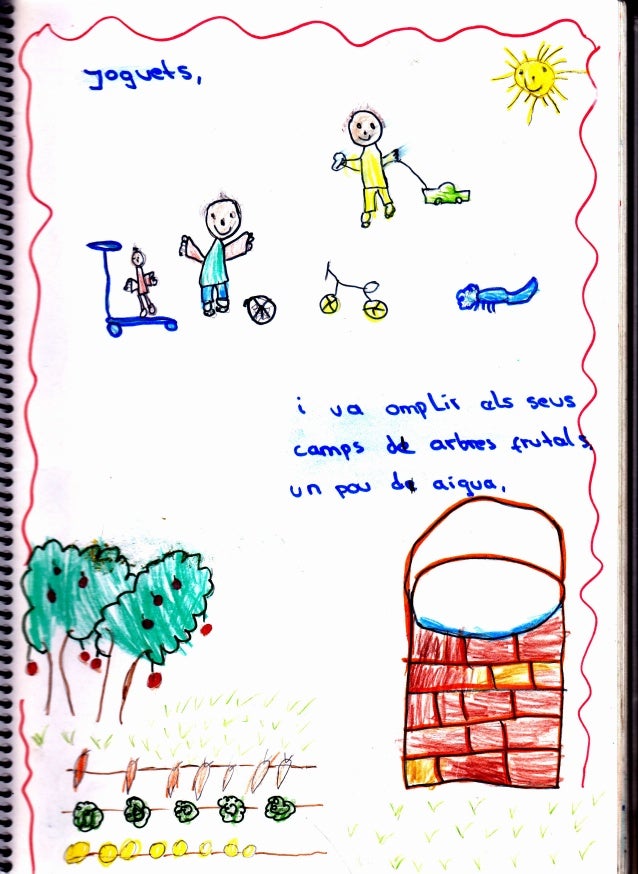 Joguets,
i va omplir els seus
camps de arbres frutals,
un pou de aigua.